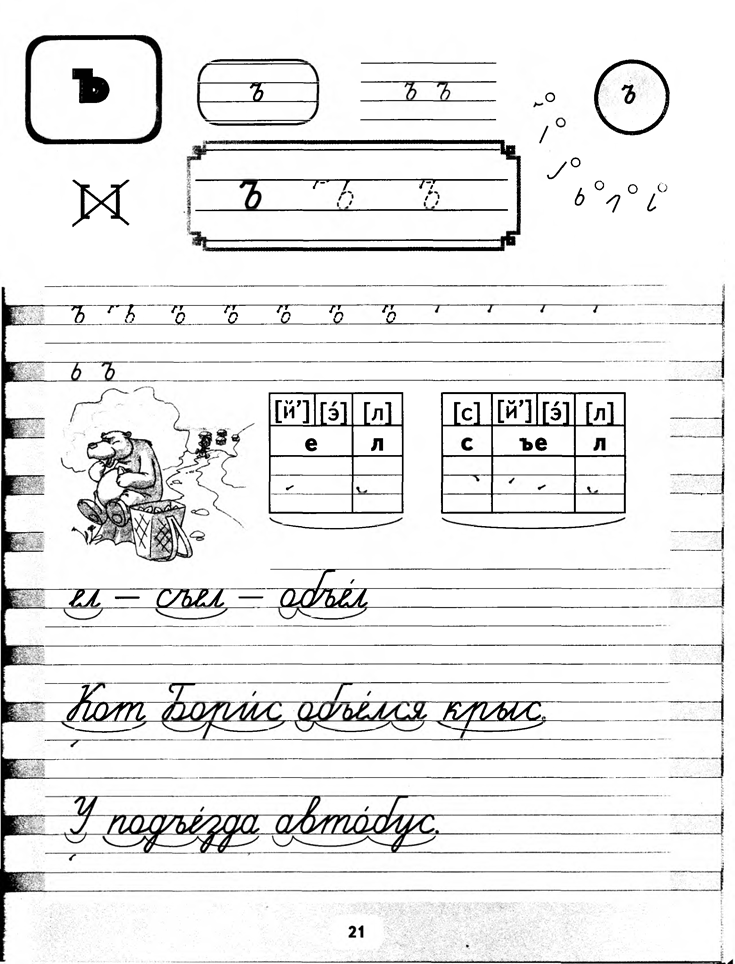 ъ ъ ъ ъ ъ
ъ ъ ъ
ъ ъ ъ ъ ъ ъ ъ
ь ъ
[й’] [э́] [л] [с] [й’] [э́] [л]
е л с ъе л
ел — съел — объе́л
Кот Бори́с объе́лся крыс.
У подъе́зда авто́бус.
21